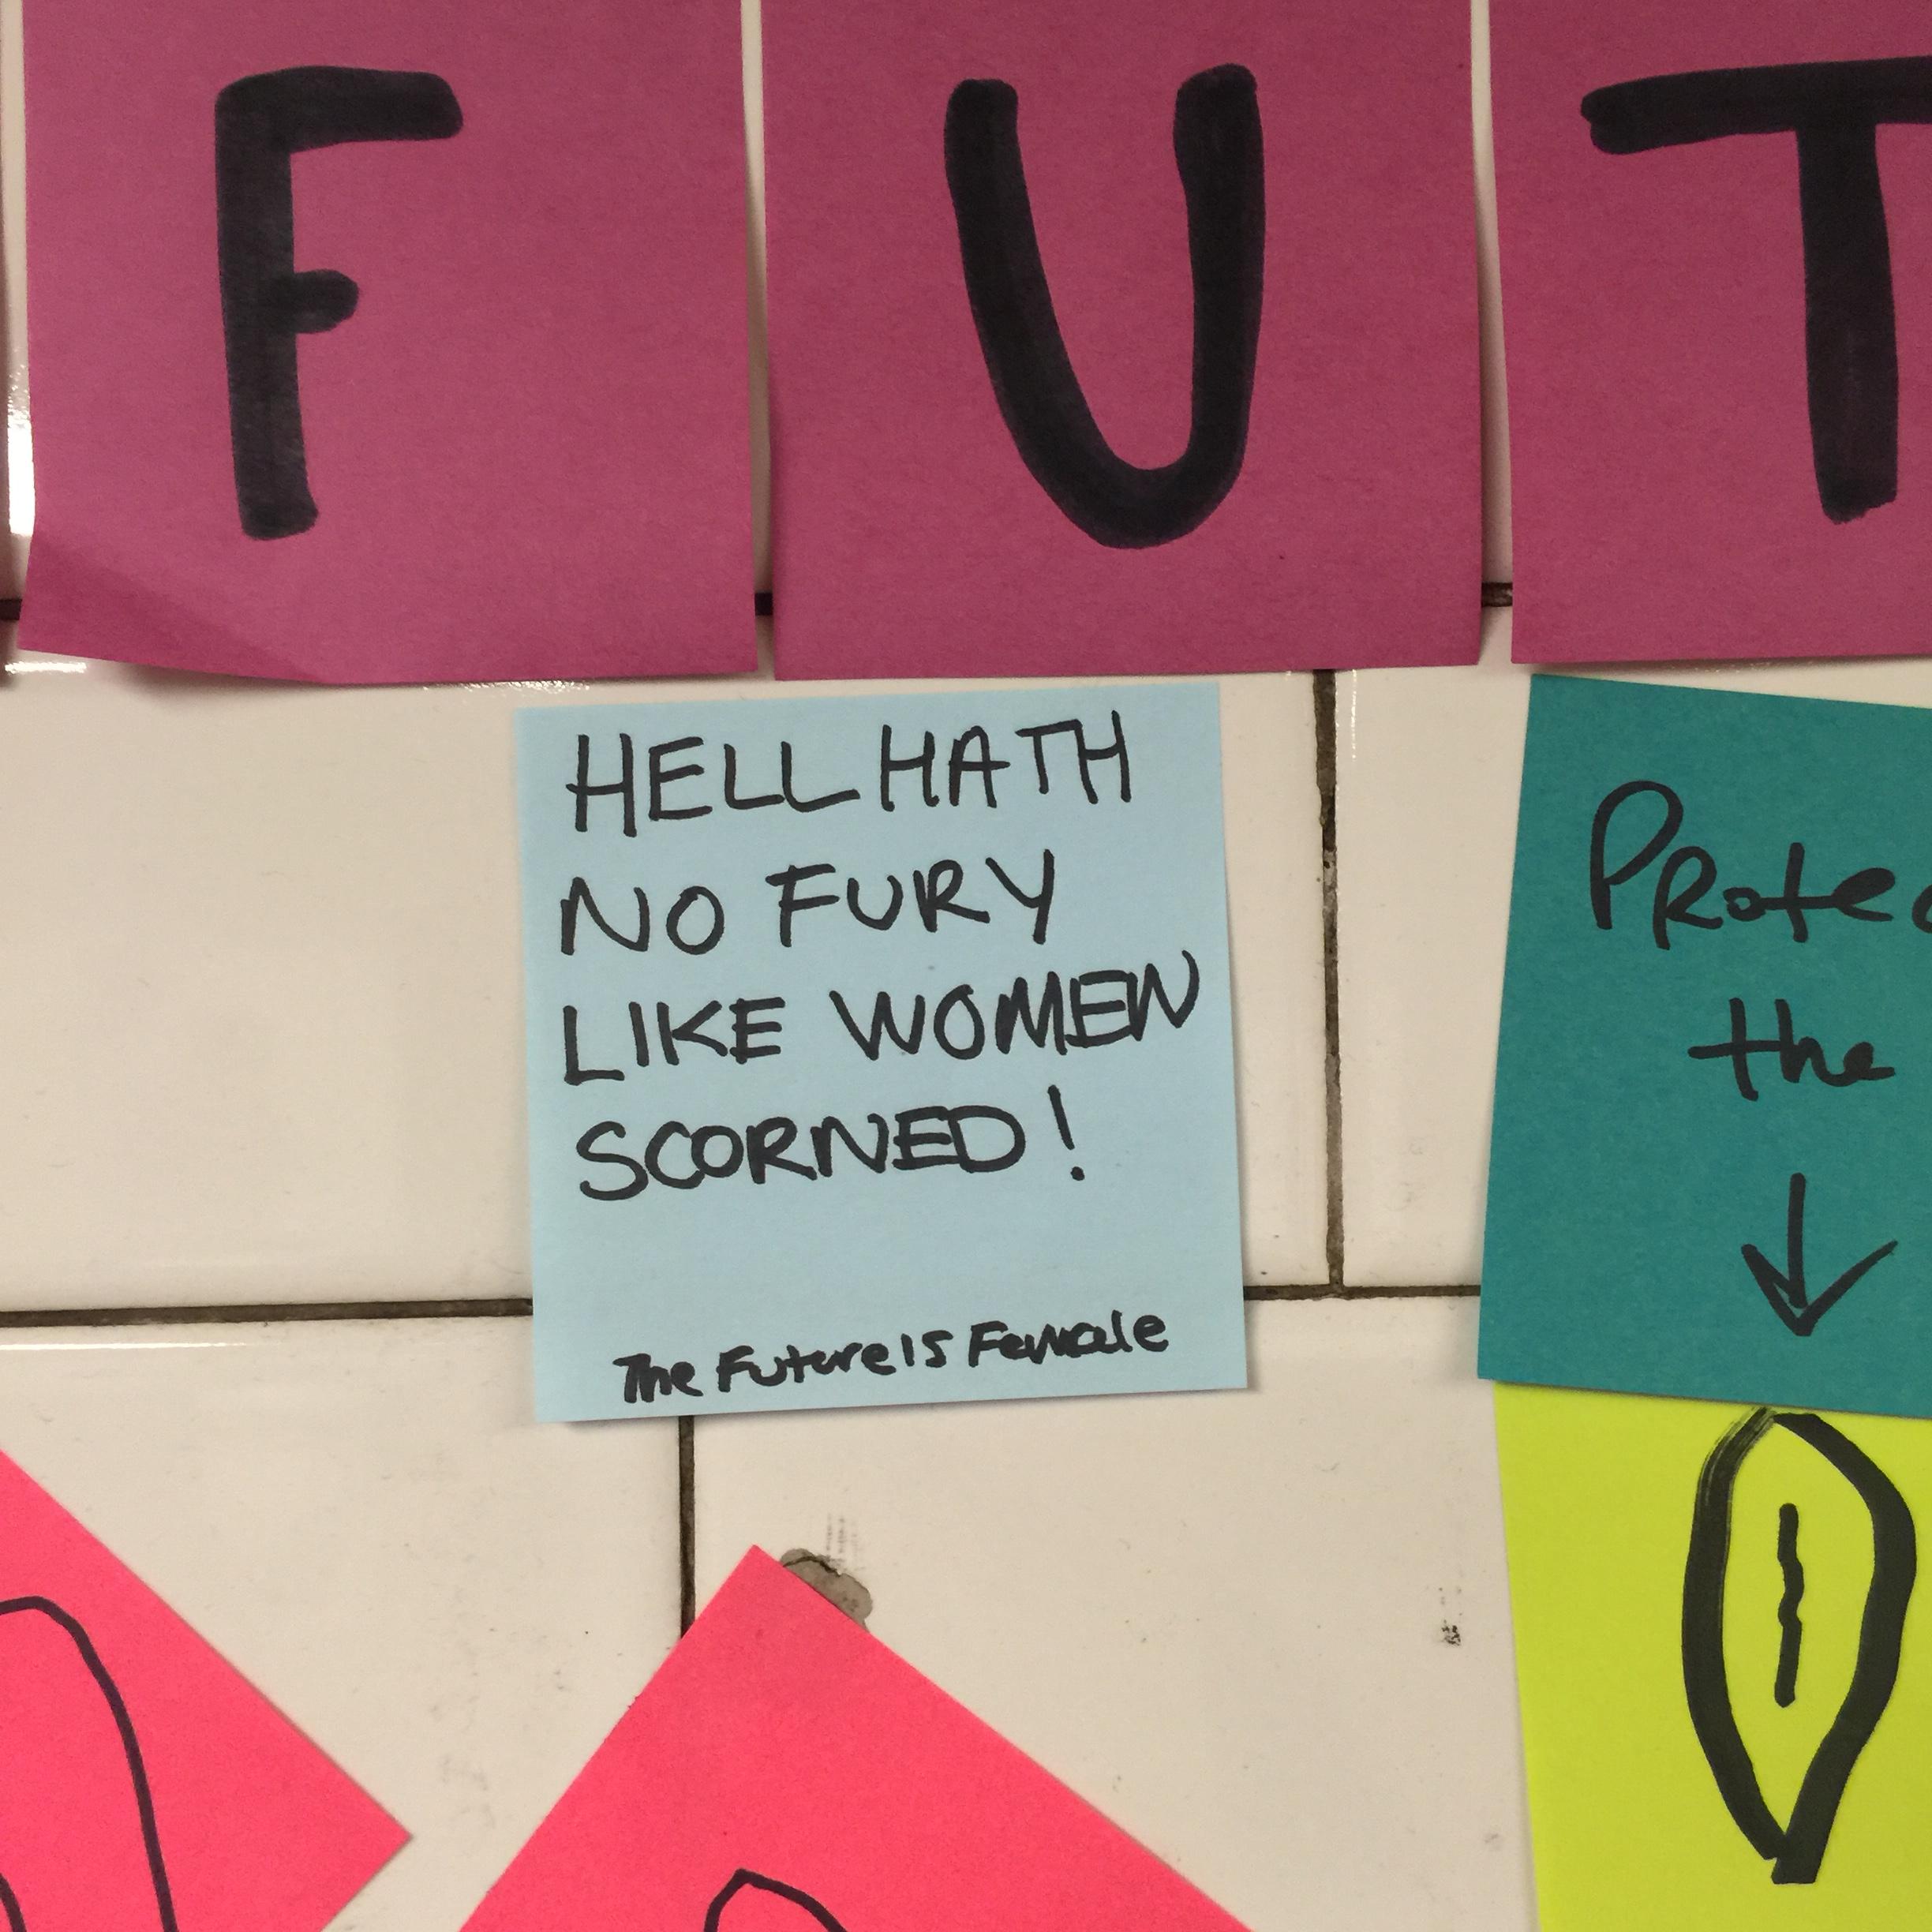 F U T
HELL HATH
NO FURY
LIKE WOMEN
SCORNED!
The Future Is Female
Protec
the